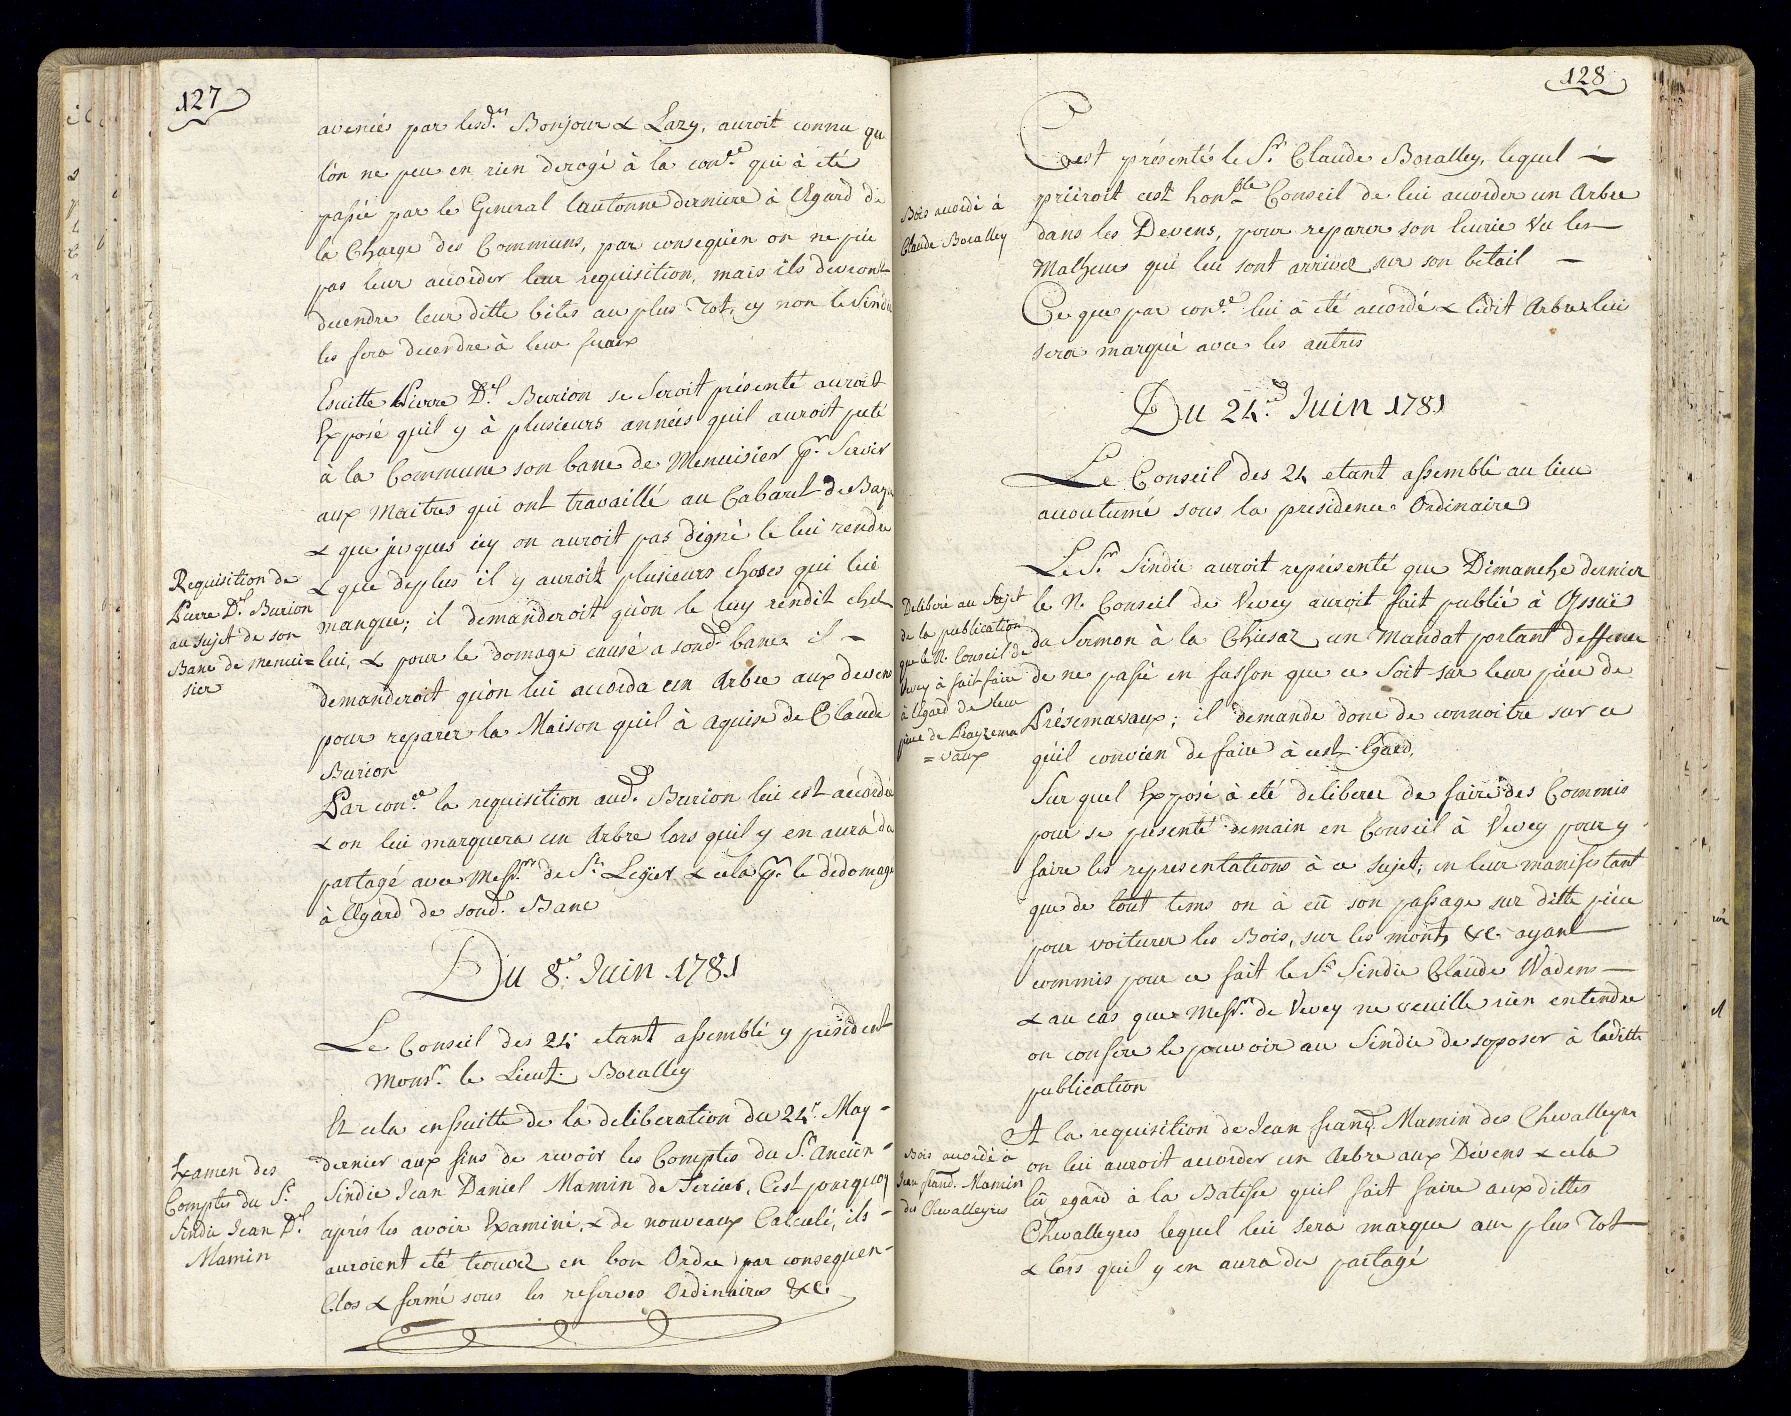 127
aveniés par lesd.rs Bonjour & Lazy, auroit connu qu
l'on ne peu en rien derogé à la con.ce qui à été
passée par le General l'autonne derniere à l'Egard de
la Charge des Communs, par consequen on ne peu
pas leur accorder leur requisition, mais ils devront
decendre leur ditte bêtes au plus Tot, sy non le Sindic
les fera decendre à leur fraix
Esuitte Pierre D.l Burion se seroit présenté auroit
Exposé quil y à plusieurs années quil auroit preté
à la Commune son banc de Menuisier p.r Servir
aux Maitres qui ont travaillé au Cabaret de Bayé
& que jusques icy on auroit pas digné le lui rendre
& que deplus il y auroit plusieurs choses qui lui
manque; il demanderoit qu'on le luy rendit chez
lui, & pour le domage causé a sond. banc il -
demanderoit qu'on lui accorda un Arbre aux devens
pour reparer la Maison quil à aquise de Claude
Burion
Requisition de
Pierre D.l Burion
au sujet de son
Banc de menui=
sier
Par con.ce la requisition aud. Burion lui est accordée
& on lui marquera un Arbre lors quil y en aura du
partagé avec Mess.rs de S.t Legier & cela p.r le dédomage
à l'Egard de soud. Banc
Du 8.e Juin 1781
Le Conseil des 24 etant assemblé y président
Mons.r le Lieut. Boralley
Et cela ensuitte de la deliberation du 24.e May -
dernier aux fins de revoir les Comptes du S.r Ancien -
Sindic Jean Daniel Mamin de Series, C'est pourquoy
aprés les avoir Examiné, & de nouveaux Calculé, ils -
auroient eté trouvez en bon Ordre par consequen -
Clos & fermé sous les reserves Ordinaires &c
Examen des
Comptes du S.r
Sindic Jean D.l
Mamin
128
C'est présenté le S.r Claude Boralley, lequel -
priéroit cest hon.ble Conseil de lui accorder un Arbre
dans les Devens, pour reparer son leurie Vu les
Malheurs qui lui sont arrivez sur son betail -
Ce que par con.ce lui à été accordé & ledit Arbre lui
sera marqué avec les autres
Bois accordé à
Claude Boralley
Du 24.e Juin 1781
Le Conseil des 24 etant assemblé au lieu
accoutumé sous la presidence Ordinaire
Le S.r Sindic auroit représenté que Dimanche dernier
le N. Conseil de Vevey auroit fait publié à l'Issuë
du Sermon à la Chiesaz un Mandat portant deffence
de ne passé en fasson que ce Soit sur leur piéce de
Présemavaux; il demande donc de connoitre sur ce
quil convien de faire à cest Egard,
Deliberé au Sujet
de la publication
que le N. Conseil de
Vevey à fait faire
à l'Egard de leur
piéce de Prayzema
= vaux
Sur quel Exposé à eté deliberer de faire des Commis
pour se présenté demain en Conseil à Vevey pour y
faire les representations à ce sujet, en leur manifestant
que de tout tems on à eü son passage sur ditte piéce
pour voiturer les Bois, sur les monts &c. ayant
commis pour ce fait le S.r Sindic Claude Wadens -
& au cas que Mess.rs de Vevey ne veuille rien entendre
on confere le pouvoir au Sindic de s'oposer à laditte
publication
A la requisition de Jean franç. Mamin des Chevalleyres
on lui auroit accorder un Arbre aux Dévens & cela
eü egard à la Batisse quil fait faire aux dittes
Chevalleyres lequel lui sera marque au plus Tot
& lors quil y en aura du partagé
Bois accordé à
Jean franç. Mamin
des Chevalleyres